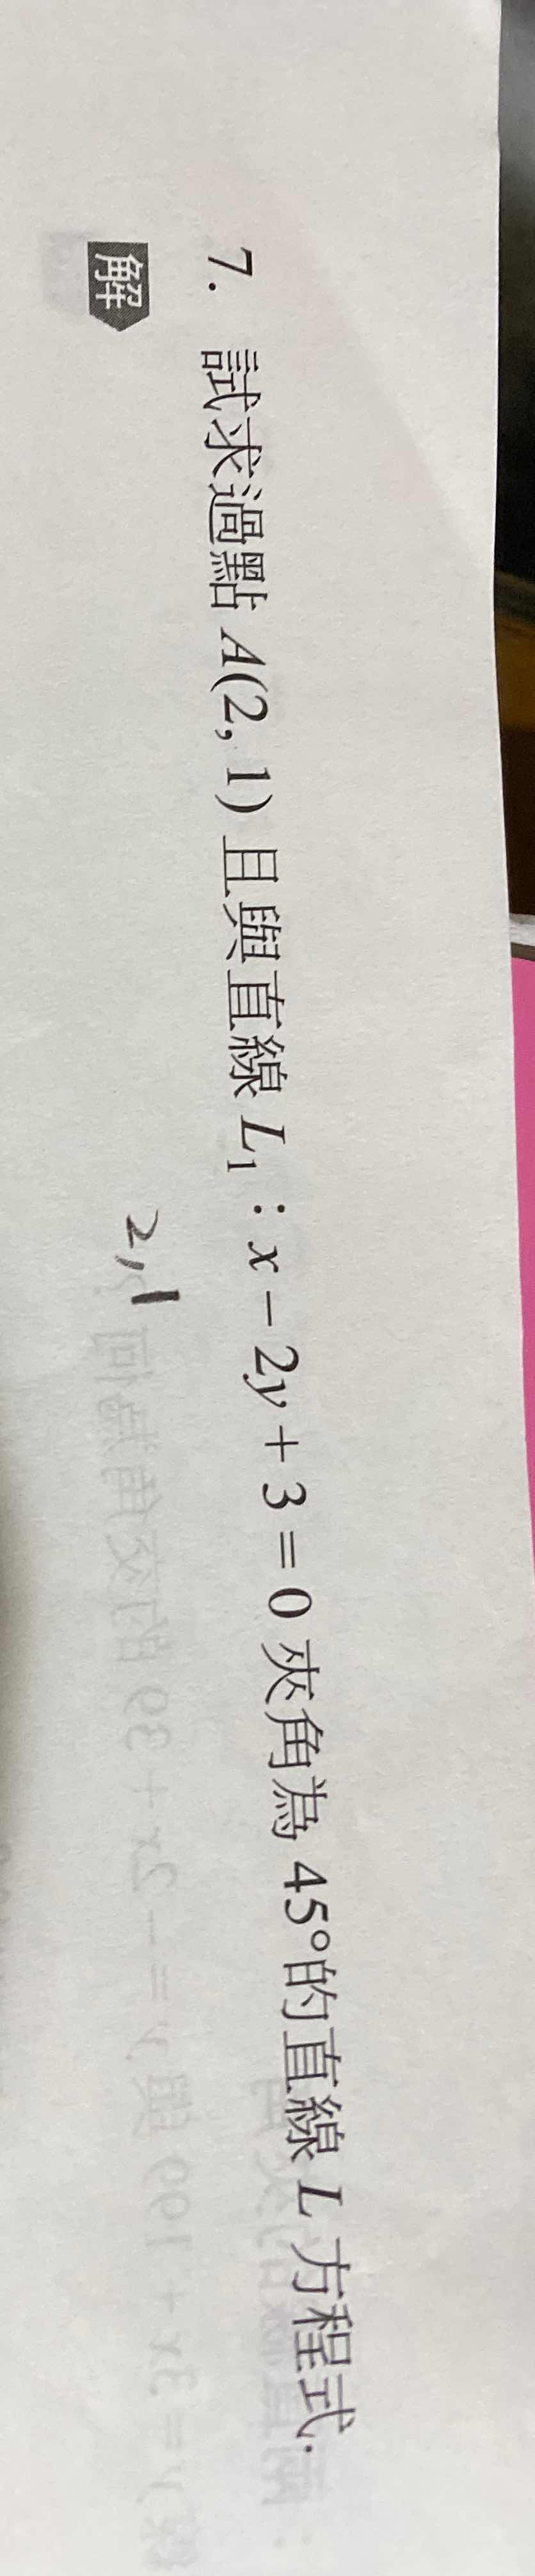 7. 試求過點 A(2, 1) 且與直線 L₁ : x − 2y + 3 = 0 夾角為 45°的直線 L 方程式.
解
2,1